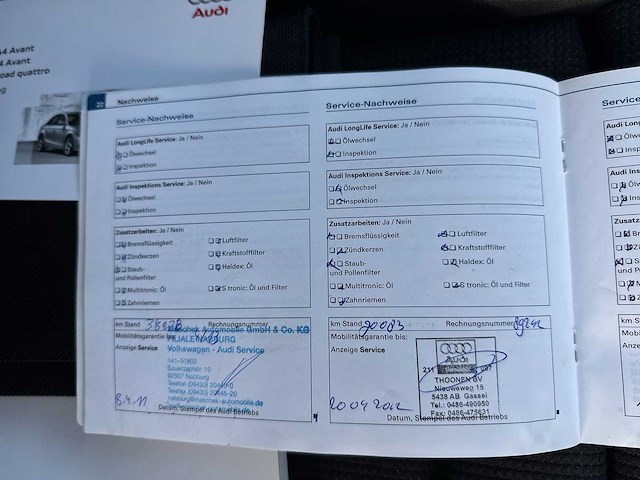 Audi
A4 Avant
4 Avant
oad quattro
ng
22 Nachweise
Service-Nachweise
Audi LongLife Service: Ja / Nein
Ölwechsel
Inspektion
Audi Inspektions Service: Ja / Nein
Ölwechsel
Inspektion
Zusatzarbeiten: Ja / Nein
Bremsflüssigkeit
Luftfilter
Zündkerzen
Kraftstofffilter
Staub-
und Pollenfilter
Haldex: Öl
Multitronic: Öl
S tronic: Öl und Filter
Zahnriemen
km Stand
Rechnungsnummer
Mobilitätsgarantie bis:
Anzeige Service
Maschek Automobile GmbH & Co. KG
FILIALE NABBURG
Volkswagen - Audi Service
92507 Nabburg
8.4.11
Datum, Stempel des Audi Betriebs
Service-Nachweise
Audi LongLife Service: Ja / Nein
Ölwechsel
Inspektion
Audi Inspektions Service: Ja / Nein
Ölwechsel
Inspektion
Zusatzarbeiten: Ja / Nein
Bremsflüssigkeit
Luftfilter
Zündkerzen
Kraftstofffilter
Staub-
und Pollenfilter
Haldex: Öl
Multitronic: Öl
S tronic: Öl und Filter
Zahnriemen
km Stand 90083
Rechnungsnummer
Mobilitätsgarantie bis:
Anzeige Service
Audi
THOONEN BV
Nieuweweg 15
5438 AB Gassel
Tel.: 0486-490950
Fax: 0486-475631
20 04 2012
Datum, Stempel des Audi Betriebs
Service
Audi Long
Ölw
Insp
Audi Ins
Ölw
Ins
Zusatza
Br
Zü
St
und Po
M
Za
km Sta
Mobi
Anze